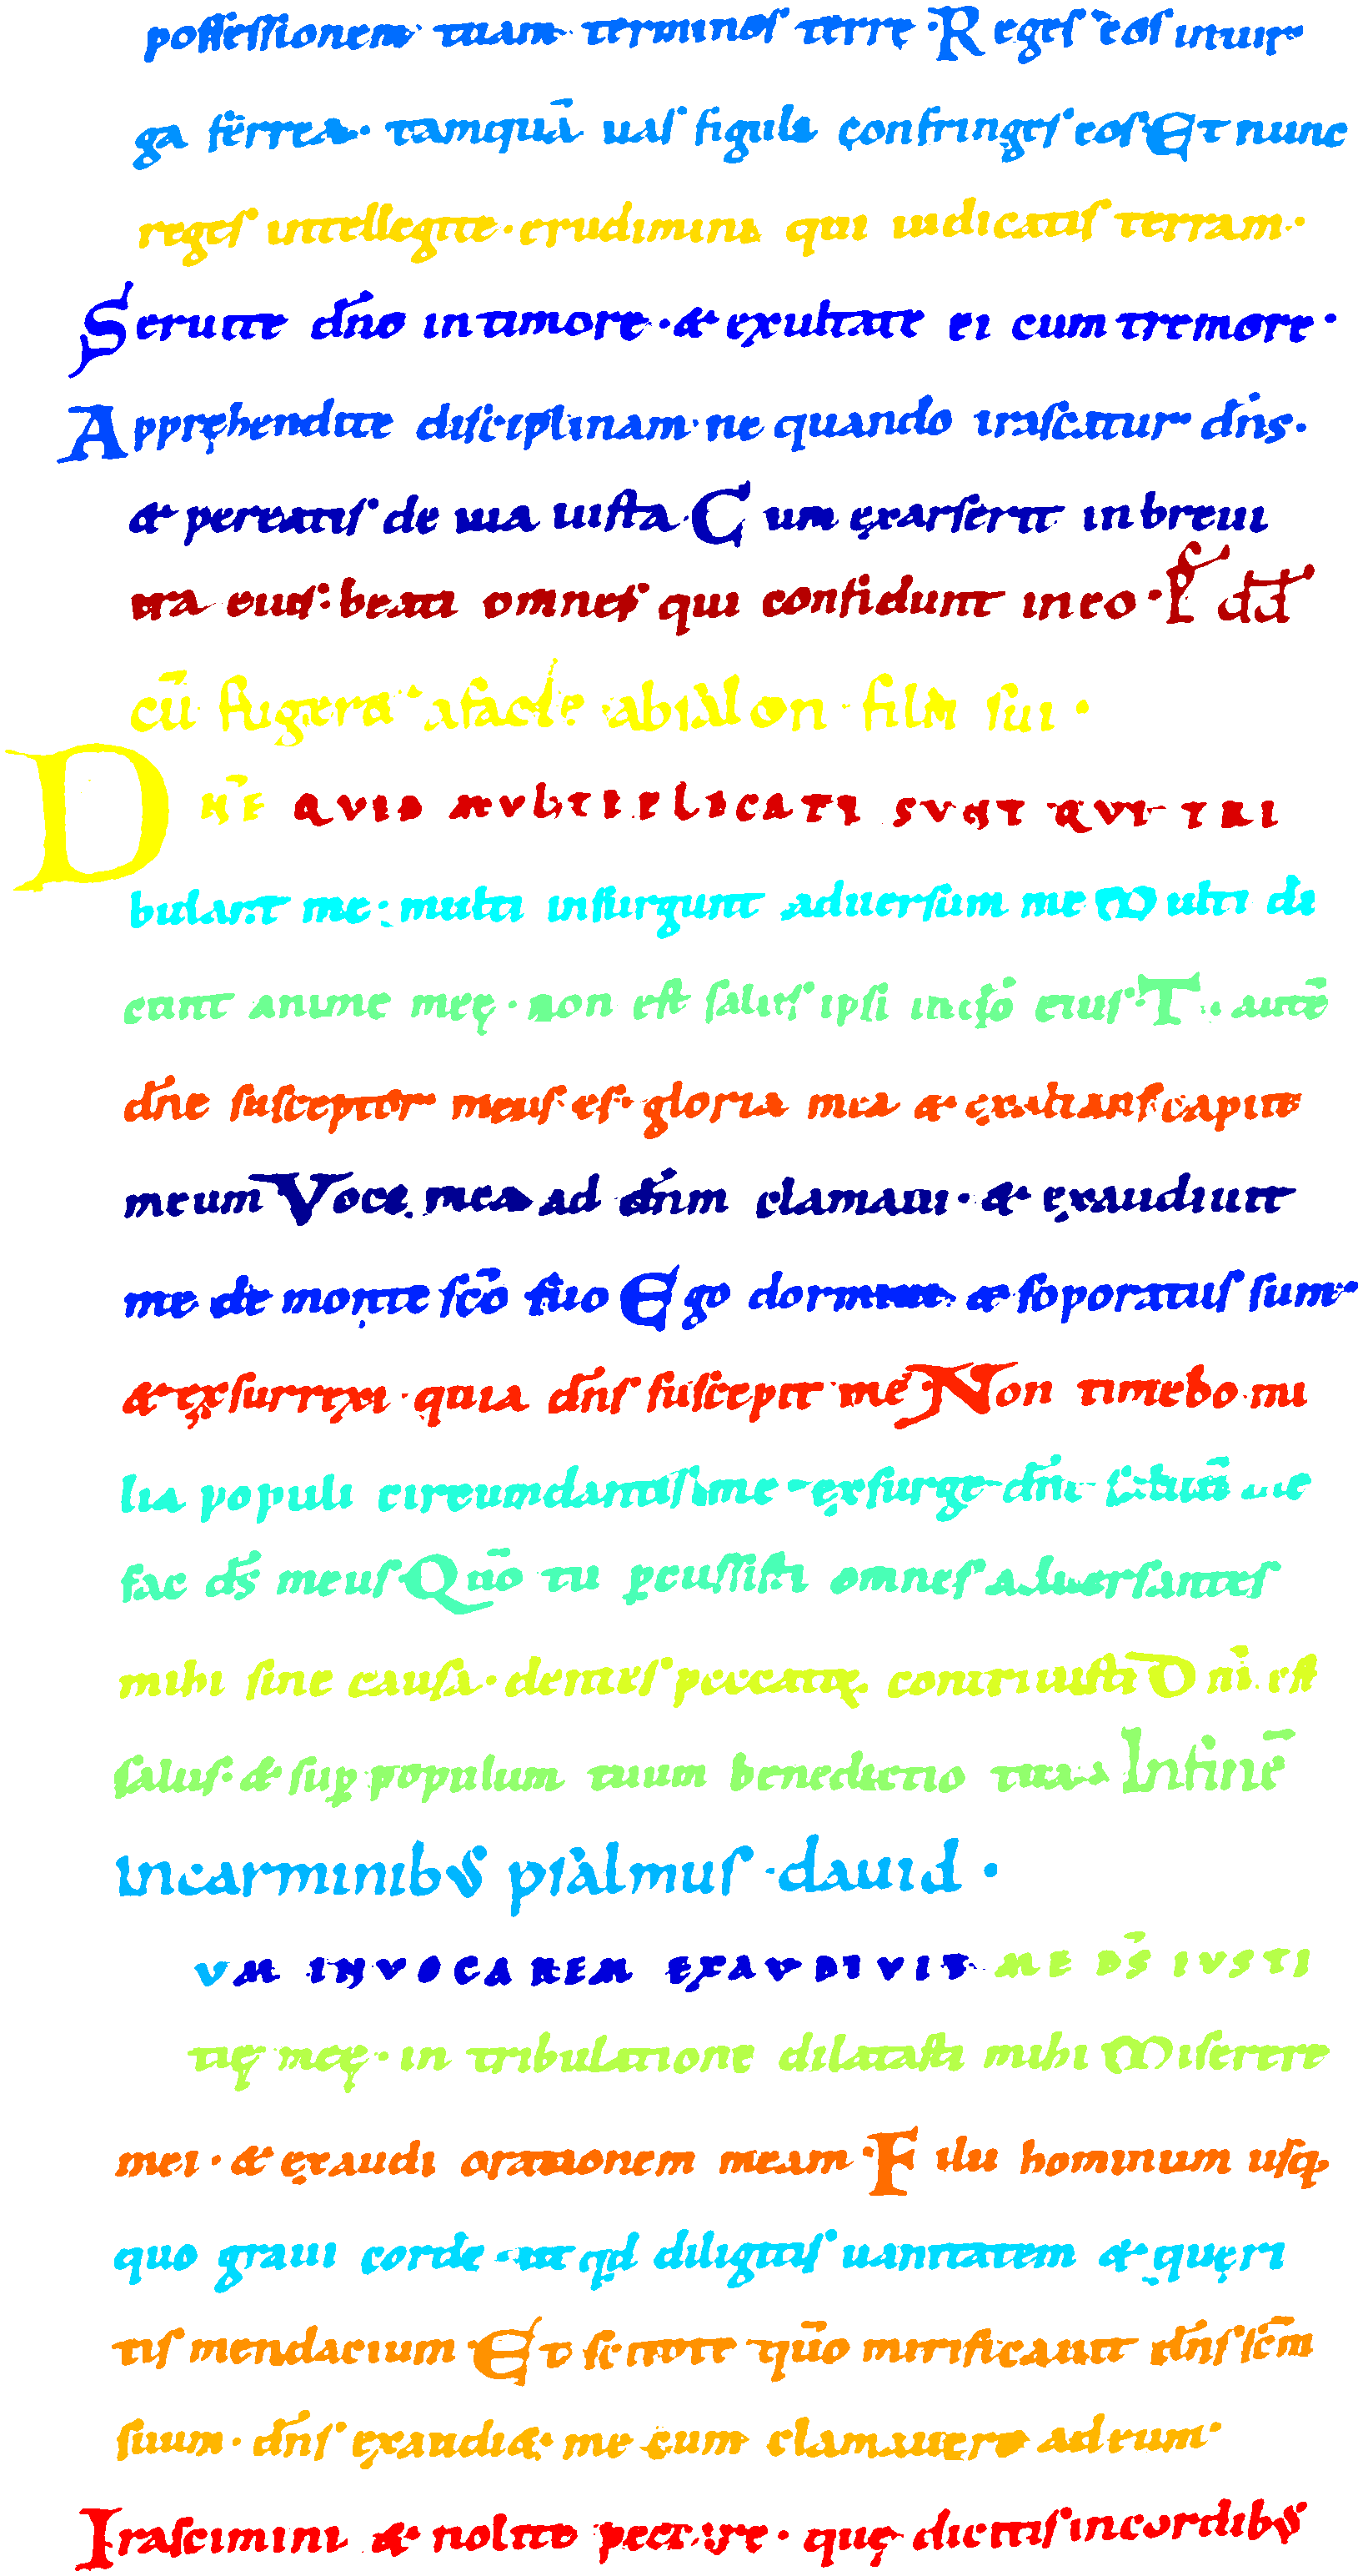 possessionem tuam terminos terrę · Reges eos in uir
ga ferrea · tamquā uas figuli confringes eos Et nunc
reges intellegite · erudimini qui iudicatis terram ·
Seruite dn̄o in timore · & exultate ei cum tremore ·
Appręhendite disciplinam · ne quando irascatur dn̄s ·
& pereatis de uia iusta · Cum exarserit in breui
ira eius : beati omnes qui confidunt in eo · Ps̄ dd̄
cū fugeret a facie abisalon · filii sui ·
Dn̄e QVID MVLTIPLICATI SVNT QVI TRI
bulant me : multi insurgunt aduersum me Multi di
cunt anime meę · non est salus ipsi in dō eius · Tu autē
dn̄e susceptor meus es · gloria mea & exaltans capite
meum Voce mea ad dn̄m clamaui · & exaudiuit
me de monte scō suo Ego dormiui & soporatus sum
& exsurrexi · quia dn̄s suscepit me Non timebo mi
lia populi circumdantis me exsurge dn̄e saluū me
fac ds̄ meus Qūo tu ꝑcussisti omnes aduersantes
mihi sine causa · dentes peccatoꝝ contriuisti Dn̄i est
salus · & suꝑ populum tuum benedictio tua In finē
in carminibus psalmus · dauid ·
VM INVOCAREM EXAVDIVIT ME DS̄ IVSTI
tię meę · in tribulatione dilatasti mihi Miserere
mei · & exaudi orationem meam · Filii hominum usq·
quo graui corde · ut qd diligitis uanitatem & quęri
tis mendacium Et scitote qūo mirificauit dn̄s scm̄
suum · dn̄s exaudi& me cum clamauero ad eum ·
Irascimini & nolite peccare · quę dicitis in cordibus